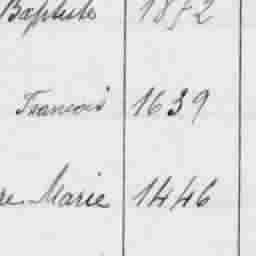 Baptiste 1872
Francois 1639
re Marie 1446